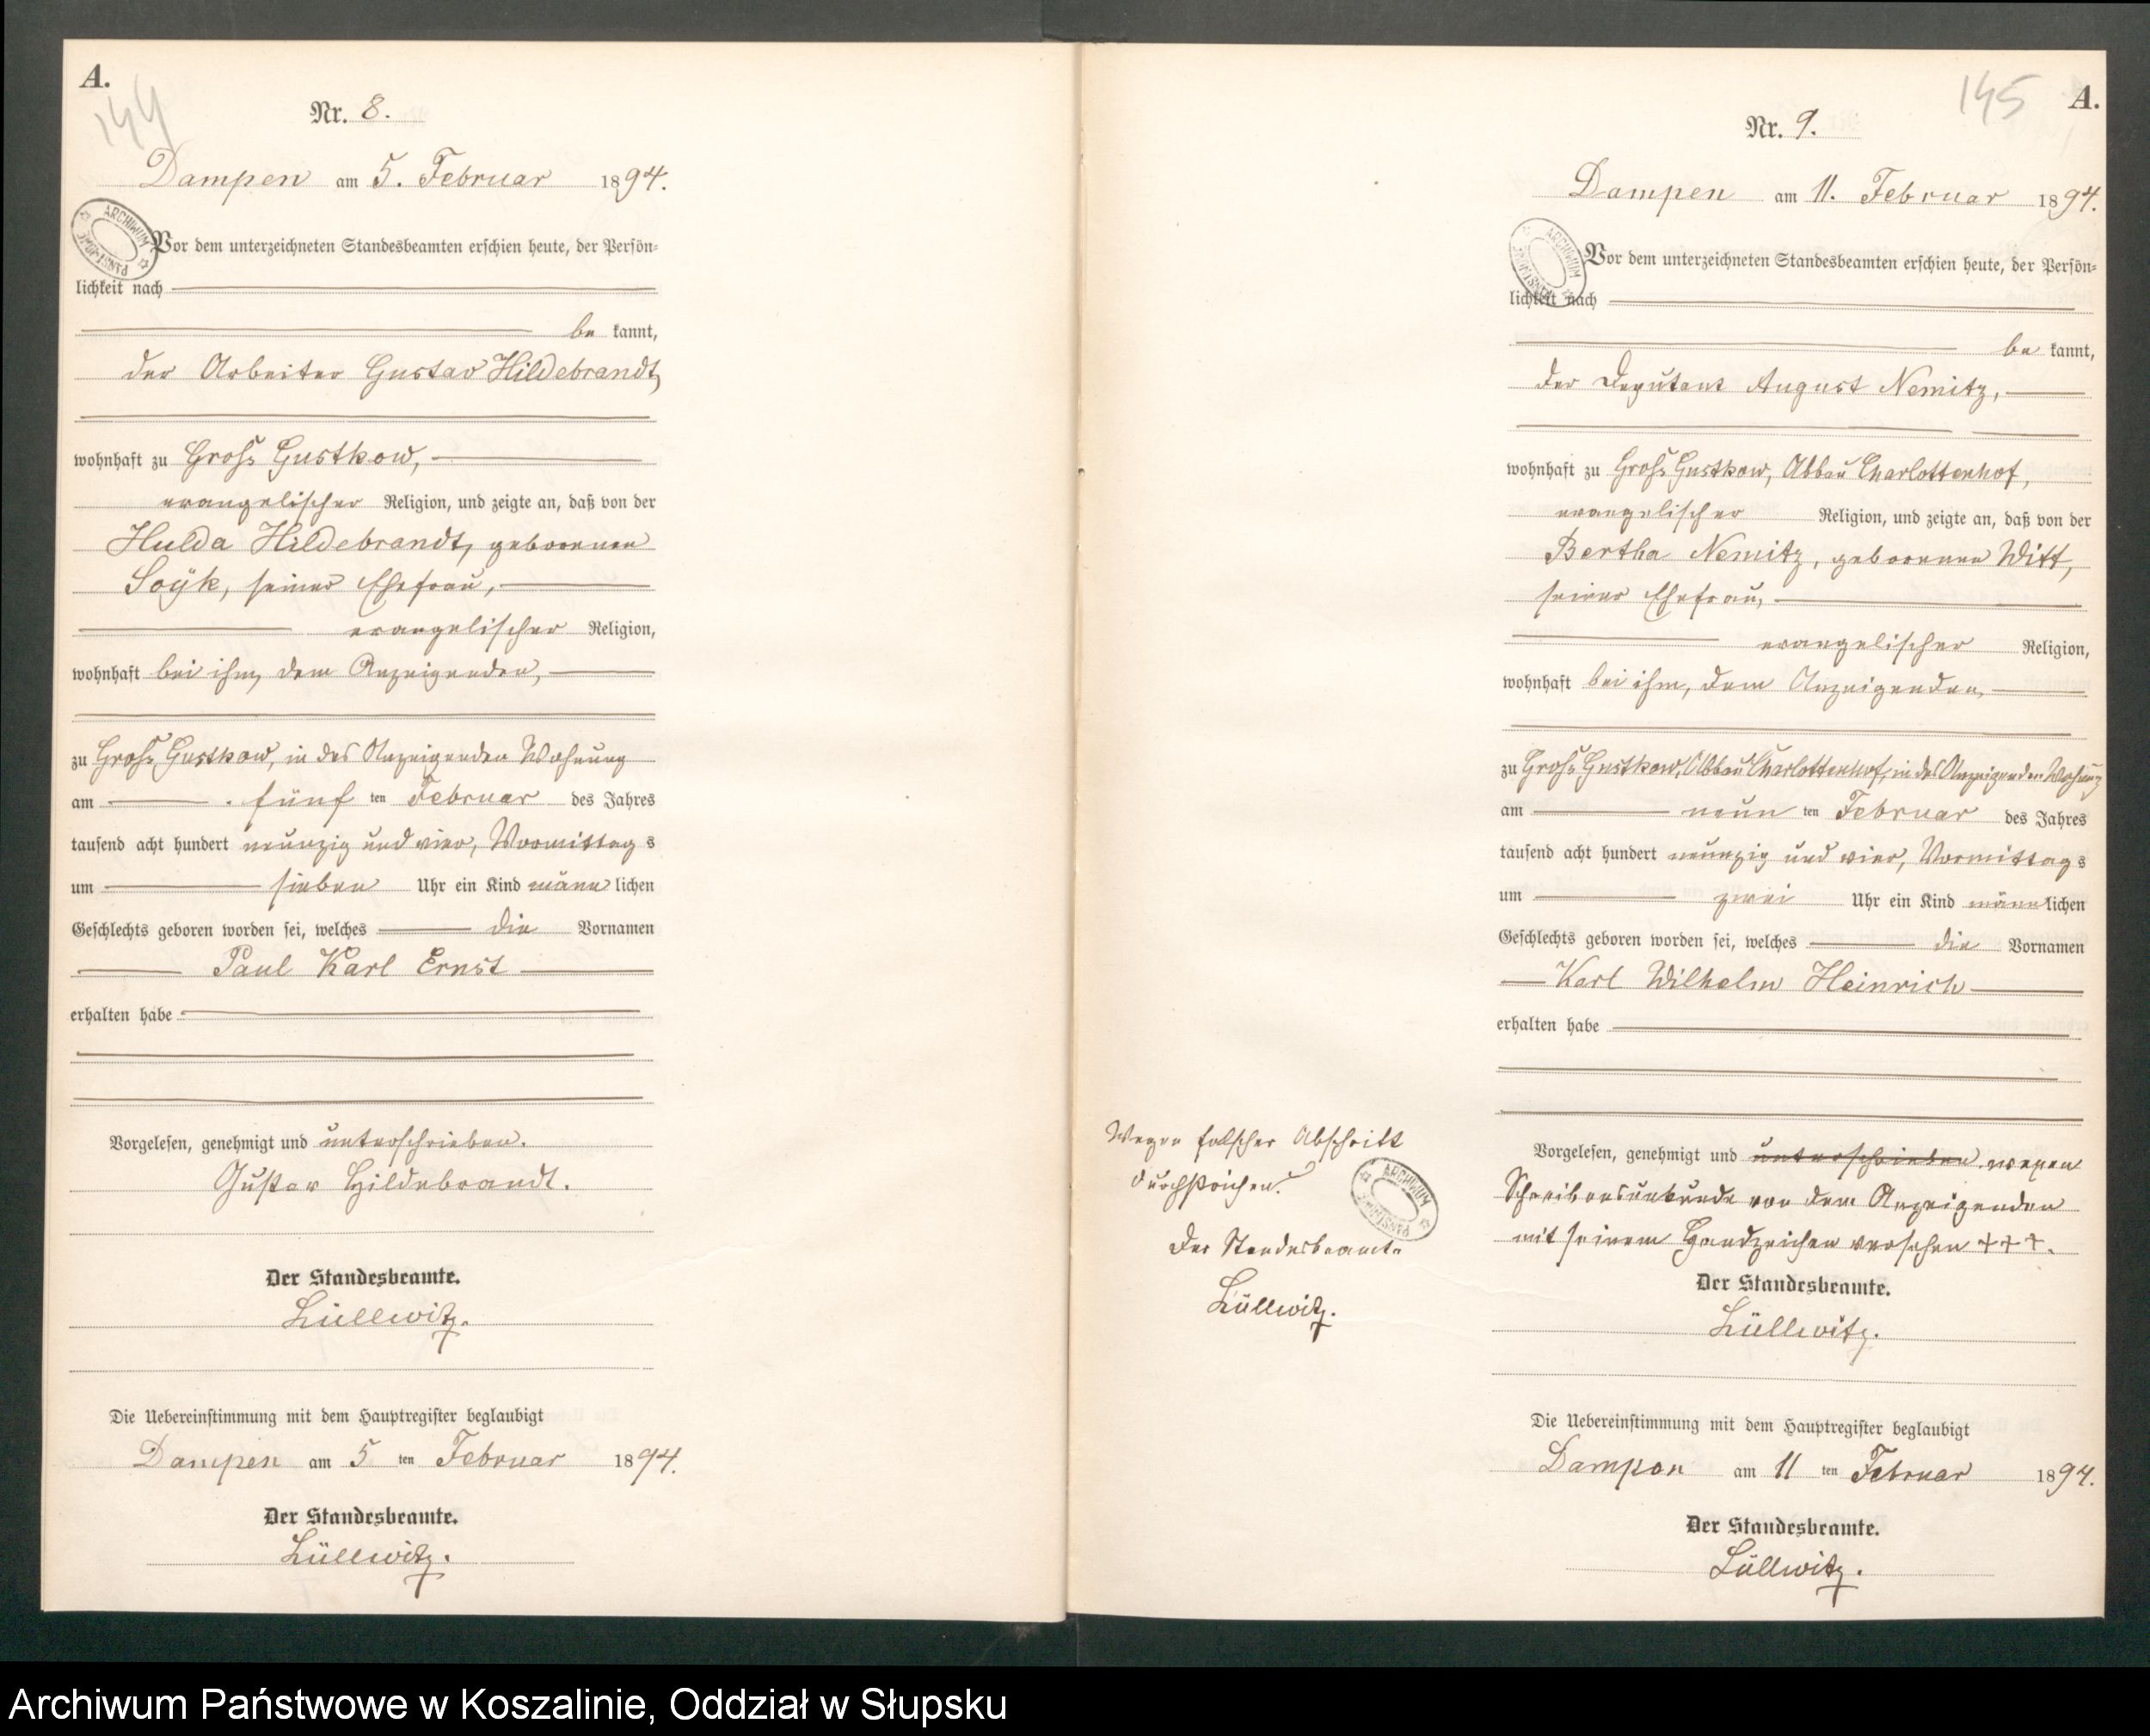 A.
144
Nr. 8.
Dampen am 5. Februar 1894.
ARCHIWUM PAŃSTWOWE
Vor dem unterzeichneten Standesbeamten erschien heute, der Persön-
lichkeit nach
be kannt,
der Arbeiter Gustav Hildebrandt,
wohnhaft zu Groß Gustkow,
evangelischer Religion, und zeigte an, daß von der
Hulda Hildebrandt, geborenen
Soÿk, seiner Ehefrau,
evangelischer Religion,
wohnhaft bei ihm, dem Anzeigenden,
zu Groß Gustkow, in des Anzeigenden Wohnung
am fünf ten Februar des Jahres
tausend acht hundert neunzig und vier, Vormittag s
um sieben Uhr ein Kind männ lichen
Geschlechts geboren worden sei, welches die Vornamen
Paul Karl Ernst
erhalten habe
Vorgelesen, genehmigt und unterschrieben.
Gustav Hildebrandt.
Der Standesbeamte.
Lüllwitz.
Die Uebereinstimmung mit dem Hauptregister beglaubigt
Dampen am 5 ten Februar 1894.
Der Standesbeamte.
Lüllwitz.
145
A.
Nr. 9.
Dampen am 11. Februar 1894.
ARCHIWUM PAŃSTWOWE
Vor dem unterzeichneten Standesbeamten erschien heute, der Persön-
lichkeit nach
be kannt,
der Deputant August Nemitz,
wohnhaft zu Groß Gustkow, Abbau Charlottenhof,
evangelischer Religion, und zeigte an, daß von der
Bertha Nemitz, geborenen Witt,
seiner Ehefrau,
evangelischer Religion,
wohnhaft bei ihm, dem Anzeigenden,
zu Groß Gustkow, Abbau Charlottenhof, in des Anzeigenden Wohnung
am neun ten Februar des Jahres
tausend acht hundert neunzig und vier, Vormittag s
um zwei Uhr ein Kind männ lichen
Geschlechts geboren worden sei, welches die Vornamen
Karl Wilhelm Heinrich
erhalten habe
Vorgelesen, genehmigt und unterschrieben. wegen
Schreibensunkunde von dem Anzeigenden
mit seinem Handzeichen versehen +++.
Der Standesbeamte.
Lüllwitz.
Wegen falscher Abschrift
durchstrichen.
ARCHIWUM PAŃSTWOWE
Der Standesbeamte
Lüllwitz.
Die Uebereinstimmung mit dem Hauptregister beglaubigt
Dampen am 11 ten Februar 1894.
Der Standesbeamte.
Lüllwitz.
Archiwum Państwowe w Koszalinie, Oddział w Słupsku